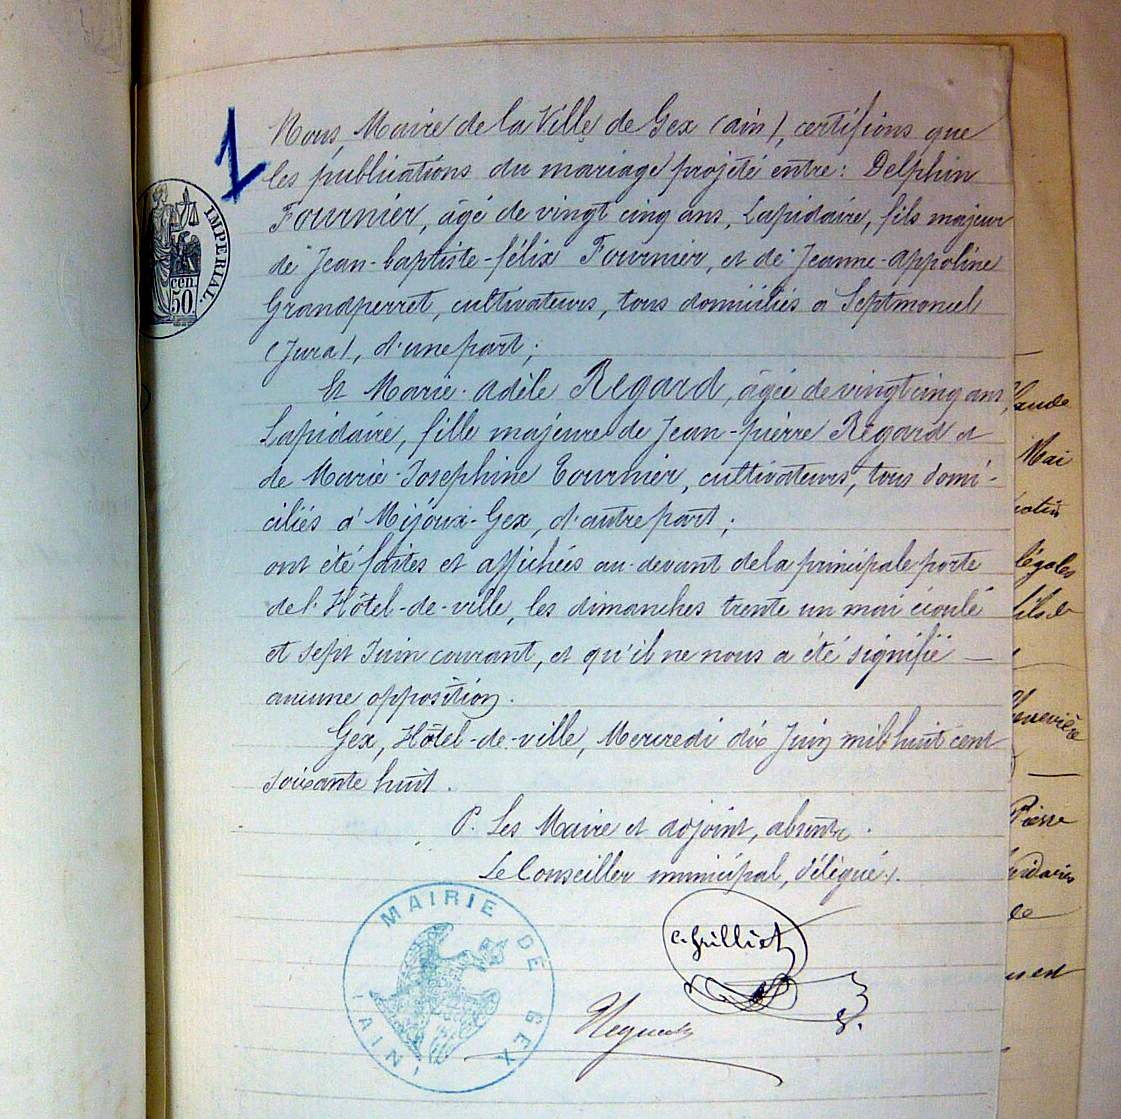 1
Nous, Maire de la Ville de Gex (ain), certifions que
les publications du mariage projeté entre: Delphin
Fournier, âgé de vingt cinq ans, Lapidaire, fils majeur
de Jean-baptiste-félix Fournier, et de Jeanne-appoline
Grandperret, cultivateurs, tous domiciliés a Septmoncel
(Jura), d'une part;
Et Marie-adèle Regard, âgée de vingt cinq ans
Lapidaire, fille majeure de Jean-pierre Regard et
de Marie-Josephine Tournier, cultivateurs, tous domi-
ciliés à Mijoux-Gex, d'autre part;
ont été faites et affichées au-devant de la principale porte
de l'Hôtel-de-ville, les dimanches trente un mai écoulé
et sept Juin courant, et qu'il ne nous a été signifié —
aucune opposition.
Gex, Hôtel-de-ville, Mercredi dix Juin mil huit cent
soixante huit.
P. Les Maire et adjoint, absents.
Le Conseiller municipal, délégué.
C. Grilliet
IMPERIAL.
50 cen
MAIRIE DE GEX
(AIN)
laude
Mai
légales
fils de
Pierre
de